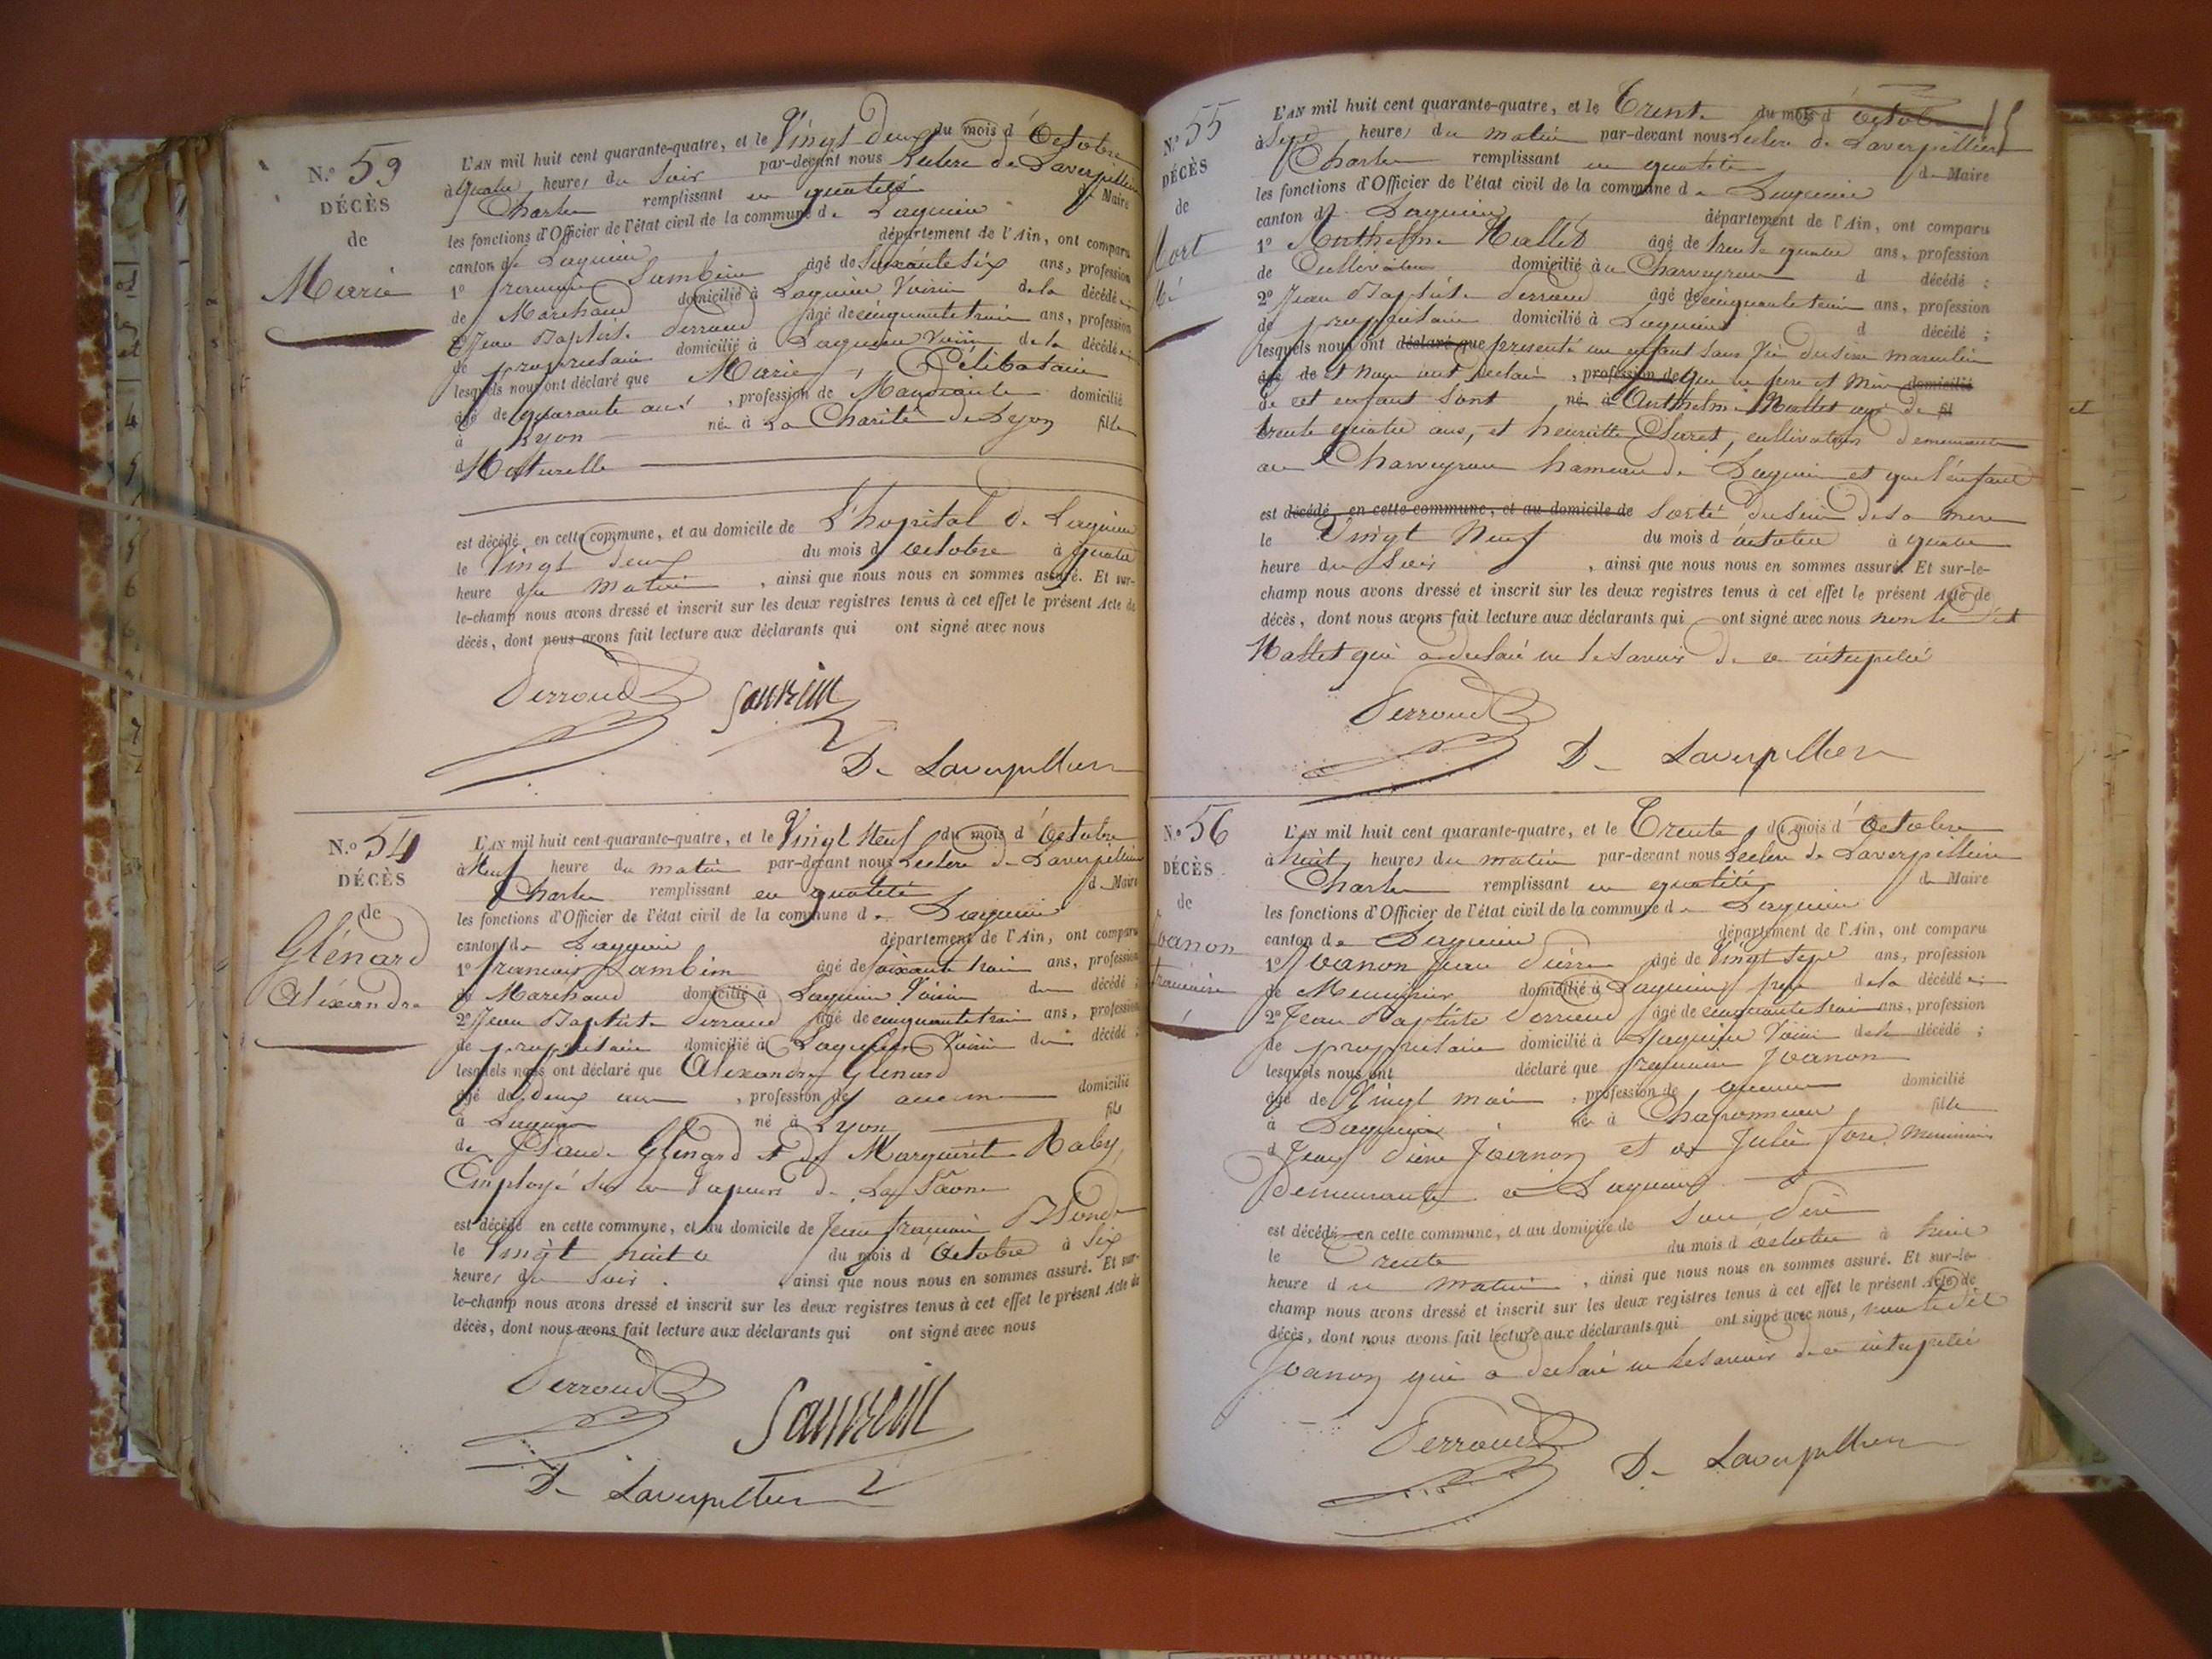 N.° 53
DÉCÈS
de
Marie
L'AN mil huit cent quarante-quatre, et le Vingt deux du mois d'Octobre
à quatre heures du Soir par-devant nous Leclerc de Laverpillière
Charles remplissant en qualité de Maire
les fonctions d'Officier de l'état civil de la commune de Lagnieu
canton de Lagnieu département de l'Ain, ont comparu
1° françois Sambin âgé de Soixante Six ans, profession
de Marchand domicilié à Lagnieu Voisin de la décédée;
2° Jean Baptiste Perroud âgé de cinquante trois ans, profession
de propriétaire domicilié à Lagnieu Voisin de la décédée;
lesquels nous ont déclaré que Marie, Célibataire
âgé de quarante ans, profession de Mandiante domicilié
à Lyon née à La Charité de Lyon fille
Naturelle
est décédé en cette commune, et au domicile de L'hopital de Lagnieu
le Vingt deux du mois d'octobre à quatre
heure du matin, ainsi que nous nous en sommes assuré. Et sur-
le-champ nous avons dressé et inscrit sur les deux registres tenus à cet effet le présent Acte de
décès, dont nous avons fait lecture aux déclarants qui ont signé avec nous
Perroud
De Laverpilliere
N.° 54
DÉCÈS
de
Glénard
Aléxandre
L'AN mil huit cent quarante-quatre, et le Vingt Neuf du mois d'Octobre
à Neuf heure du matin par-devant nous Leclerc de Laverpillière
Charles remplissant en qualité de Maire
les fonctions d'Officier de l'état civil de la commune de Lagnieu
canton de Lagnieu département de l'Ain, ont comparu
1° francois Sambin âgé de soixante trois ans, profession
de Marchand domicilié à Lagnieu Voisin du décédé;
2° Jean Baptiste Perroud âgé de cinquante trois ans, profession
de propriétaire domicilié à Lagnieu Voisin du décédé;
lesquels nous ont déclaré que Alexandre Glenard
âgé de deux ans, profession de aucune domicilié
à Lagnieu né à Lyon fils
de Claude Glenard et de Marguerite Raby,
Employé sur les Vapeurs de La Saone
est décédé en cette commune, et au domicile de Jean françois
le Vingt huit du mois d'Octobre à Six
heures du Soir. ainsi que nous nous en sommes assuré. Et sur-
le-champ nous avons dressé et inscrit sur les deux registres tenus à cet effet le présent Acte de
décès, dont nous avons fait lecture aux déclarants qui ont signé avec nous
Perroud
De Laverpilliere
N.° 55
DÉCÈS
de
Mort
Né
L'AN mil huit cent quarante-quatre, et le Trente du mois d'Octobre
à Sept heures du matin par-devant nous Leclerc de Laverpillière
Charles remplissant en qualité de Maire
les fonctions d'Officier de l'état civil de la commune de Lagnieu
canton de Lagnieu département de l'Ain, ont comparu
1° Anthelme Nallet âgé de trente quatre ans, profession
de Cultivateur domicilié à Charveyron d décédé;
2° Jean Baptiste Perroud âgé de cinquante trois ans, profession
de propriétaire domicilié à Lagnieu d décédé;
lesquels nous ont déclaré que presenté un enfant sans Vie du sexe masculin
âgé de et nous ont declaré, profession de que les pere et Mere domicilié
de cet enfant sont né à Anthelme Nallet agé de fil
trente quatre ans, et henriette, cultivateurs demeurants
au Charveyron hameau de Lagnieu et que l'enfant
est décédé en cette commune, et au domicile de Sorté du sein de sa mere
le Vingt Neuf du mois d'octobre à quatre
heure du Soir, ainsi que nous nous en sommes assuré. Et sur-le-
champ nous avons dressé et inscrit sur les deux registres tenus à cet effet le présent Acte de
décès, dont nous avons fait lecture aux déclarants qui ont signé avec nous non le dit
Nallet qui a declaré ne le savoir de ce interpellé
Perroud
De Laverpilliere
N.° 56
DÉCÈS
de
Joanon
francoise
L'AN mil huit cent quarante-quatre, et le Trente du mois d'Octobre
à huit heures du matin par-devant nous Leclerc de Laverpillière
Charles remplissant en qualité de Maire
les fonctions d'Officier de l'état civil de la commune de Lagnieu
canton de Lagnieu département de l'Ain, ont comparu
1° Joanon Jean Pierre âgé de Vingt Sept ans, profession
de Menuisier domicilié à Lagnieu pere de la décédée;
2° Jean Baptiste Perroud âgé de cinquante trois ans, profession
de propriétaire domicilié à Lagnieu Voisin de la décédé;
lesquels nous ont déclaré que françoise Joanon
âgé de Vingt mois, profession de aucune domicilié
à Lagnieu née à fille
d Jean Pierre Joanon et de Julie
demeurants à Lagnieu
est décédée en cette commune, et au domicile de Son Père
le Trente du mois d'octobre à
heure du matin, ainsi que nous nous en sommes assuré. Et sur-le-
champ nous avons dressé et inscrit sur les deux registres tenus à cet effet le présent Acte de
décès, dont nous avons fait lecture aux déclarants qui ont signé avec nous, non le dit
Joanon qui a declaré ne le savoir de ce interpellé
Perroud
De Laverpilliere